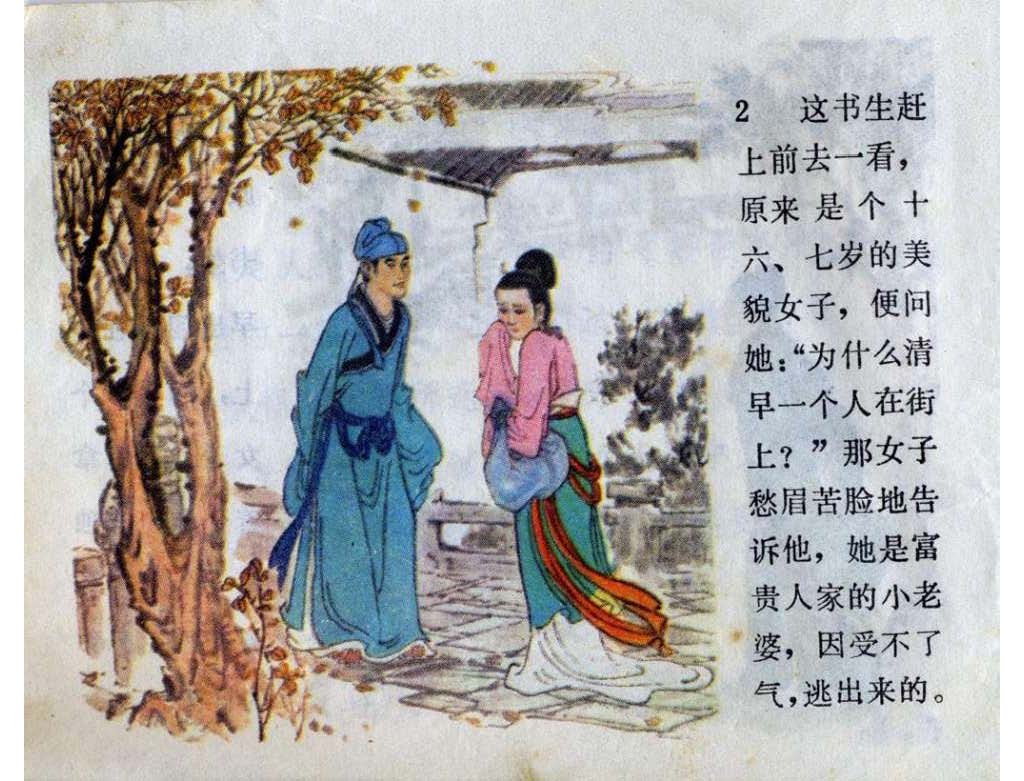 2 这书生赶
上前去一看，
原来是个十
六、七岁的美
貌女子，便问
她：“为什么清
早一个人在街
上？”那女子
愁眉苦脸地告
诉他，她是富
贵人家的小老
婆，因受不了
气，逃出来的。